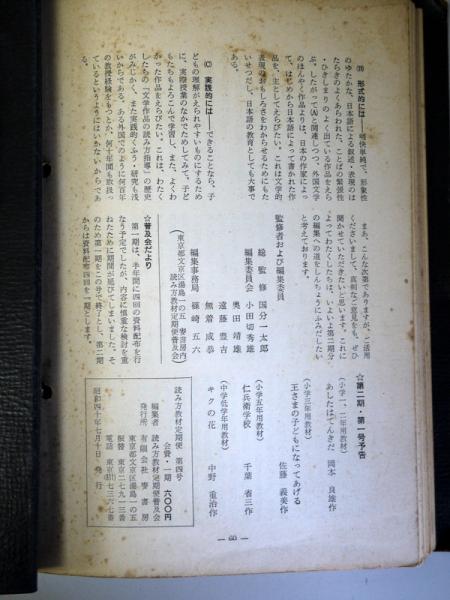 (B) 形式的には――明快単純で、形象性
のゆたかな、日本語による叙述・表現のは
たらきのよくあらわれた、ことばの緊張性
・ひきしまりのよく出ている作品をえら
ぶ。したがって(A)と関連しつつ、外国文学
のほんやく作品よりは、日本の作家によっ
て、はじめから日本語によって書かれた作
品を、主としてえらびたい。これは文学的
表現のおもしろさをわからせるためにもた
いせつだし、日本語の教育としても大事で
ある。
(C) 実践的には――できることなら、子
どもの理解がえられやすいものにするため
に、実際授業のなかでためしてみて、子ど
もたちもよろこんで学習し、また、よくわ
かった作品をえらびたい。これは、わたく
したちの「文学作品の読み方指導」の歴史
がみじかく、また実践的くふう・研究も浅
いからである。ある外国でのように何百年
の教授経験をもつとか、何十年間も取扱っ
ているというようにはいかないからであ
る。
まあ、こんな次第でありますが、ご活用
くださいまして、真剣なご意見をも、ぜひ
聞かせていただきたいと思います。これに
よってわたくしたちは、いよいよ第二期分
の編集への道をしんちょうにふみだしたい
と考えております。
監修者および編集委員
総監修 国分一太郎
編集委員会 小田切秀雄
奥田靖雄
遠藤豊吉
無着成恭
編集事務局 篠崎五六
(東京都文京区湯島一の五 麦書房内)
読み方教材定期便普及会
☆普及会だより
第一期は、半年間に四回の資料配布を行
なう予定でしたが、内容に慎重な検討を重
ねたために期間が延びてしまいました。そ
のため第一期をこの号で終りとし、第二期
からは資料配布四回を一期とします。
☆第二期・第一号予告
(小学一、二年用教材)
あしたはてんきだ 岡本良雄作
(小学三年用教材)
王さまの子どもになってあげる
佐藤義美作
(小学五年用教材)
仁兵衛学校 千葉省三作
(中学低学年用教材)
キクの花 中野重治作
読み方教材定期便 第四号
会費・一期 六〇〇円
編集者 読み方教材定期便普及会
発行所 有限会社 麦書房
東京都文京区湯島一の五
振替 東京二七九一三番
昭和四十年七月十日 発行
― 60 ―